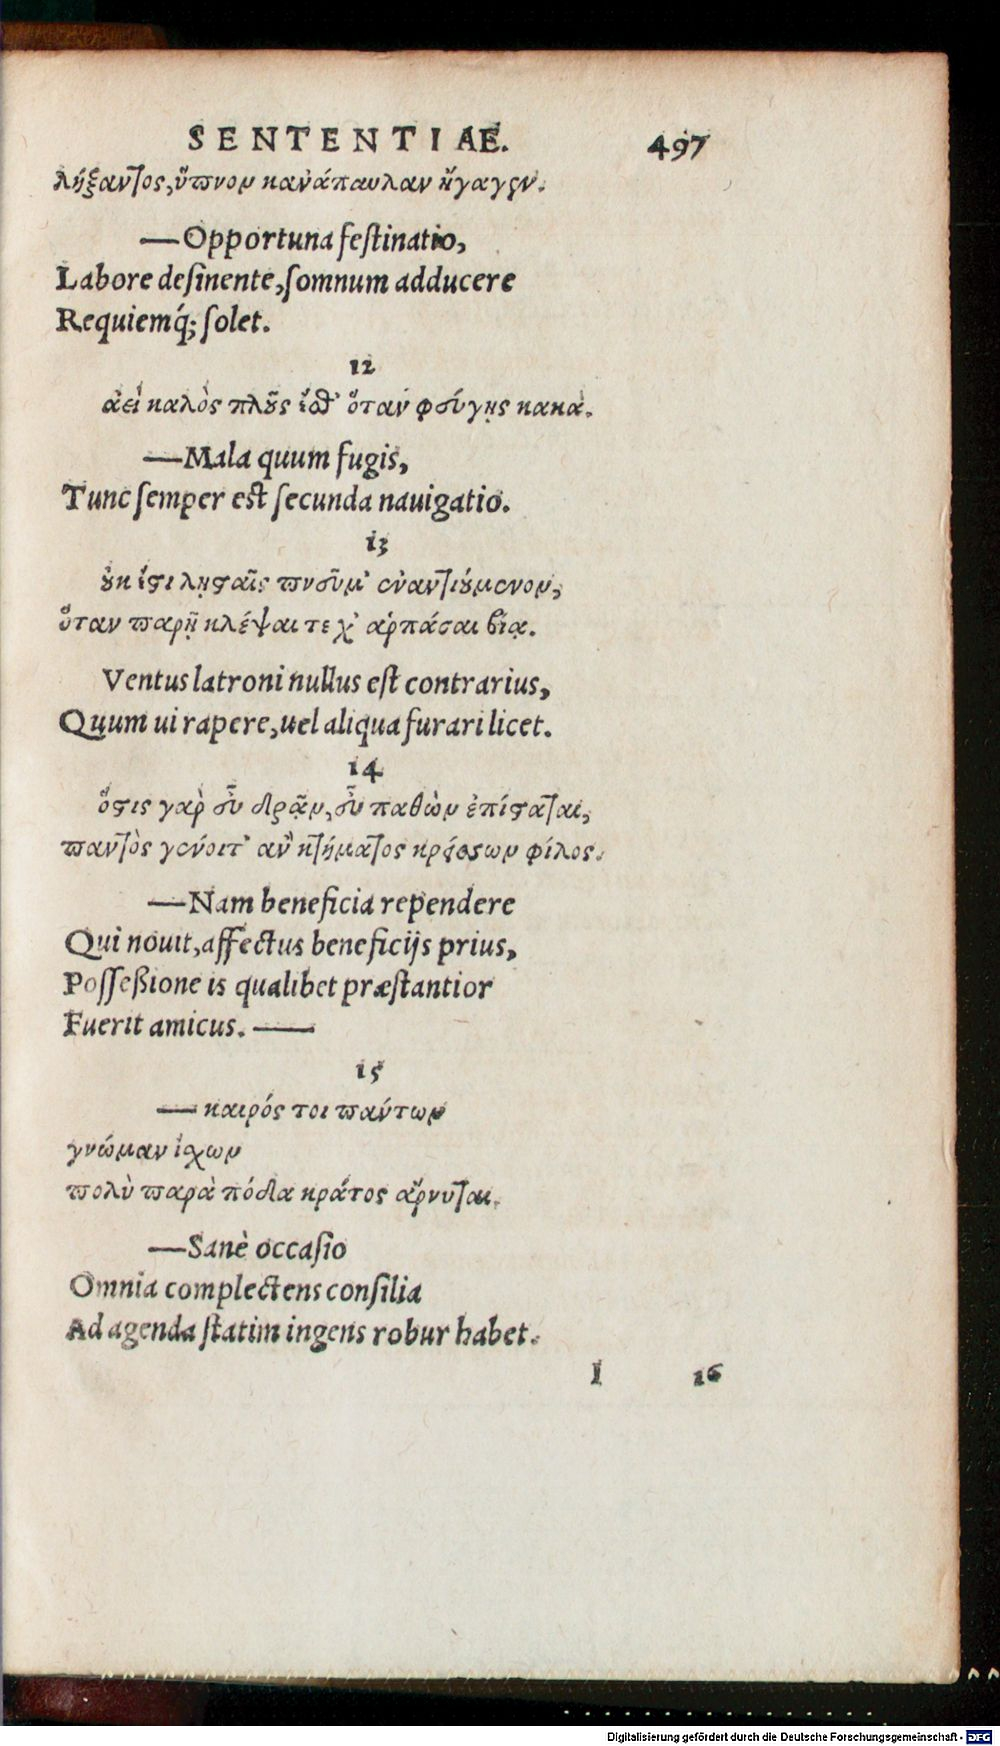 SENTENTIAE. 497
λήξαντος, ὕπνον κανάπαυλαν ἤγαγεν.
—Opportuna festinatio,
Labore desinente, somnum adducere
Requiemq́; solet.
12
ἀεὶ καλὸς πλοῦς ἔσθ' ὅταν φεύγῃς κακά.
—Mala quum fugis,
Tunc semper est secunda nauigatio.
13
οὐκ ἔστι λῃσταῖς πνεῦμ' ἐναντιούμενον,
ὅταν παρῇ κλέψαι τε χ' ἁρπάσαι βίᾳ.
Ventus latroni nullus est contrarius,
Quum ui rapere, uel aliqua furari licet.
14
ὅστις γὰρ εὖ δρᾷν, εὖ παθὼν ἐπίσταται,
παντὸς γένοιτ' ἂν κτήματος κρείσσων φίλος.
—Nam beneficia rependere
Qui nouit, affectus beneficijs prius,
Possessione is qualibet præstantior
Fuerit amicus.—
15
—καιρός τοι πάντων
γνώμαν ἴχων
πολὺ παρὰ πόδα κράτος ἄρνυται.
—Sanè occasio
Omnia complectens consilia
Ad agenda statim ingens robur habet.
I 16
Digitalisierung gefördert durch die Deutsche Forschungsgemeinschaft - DFG